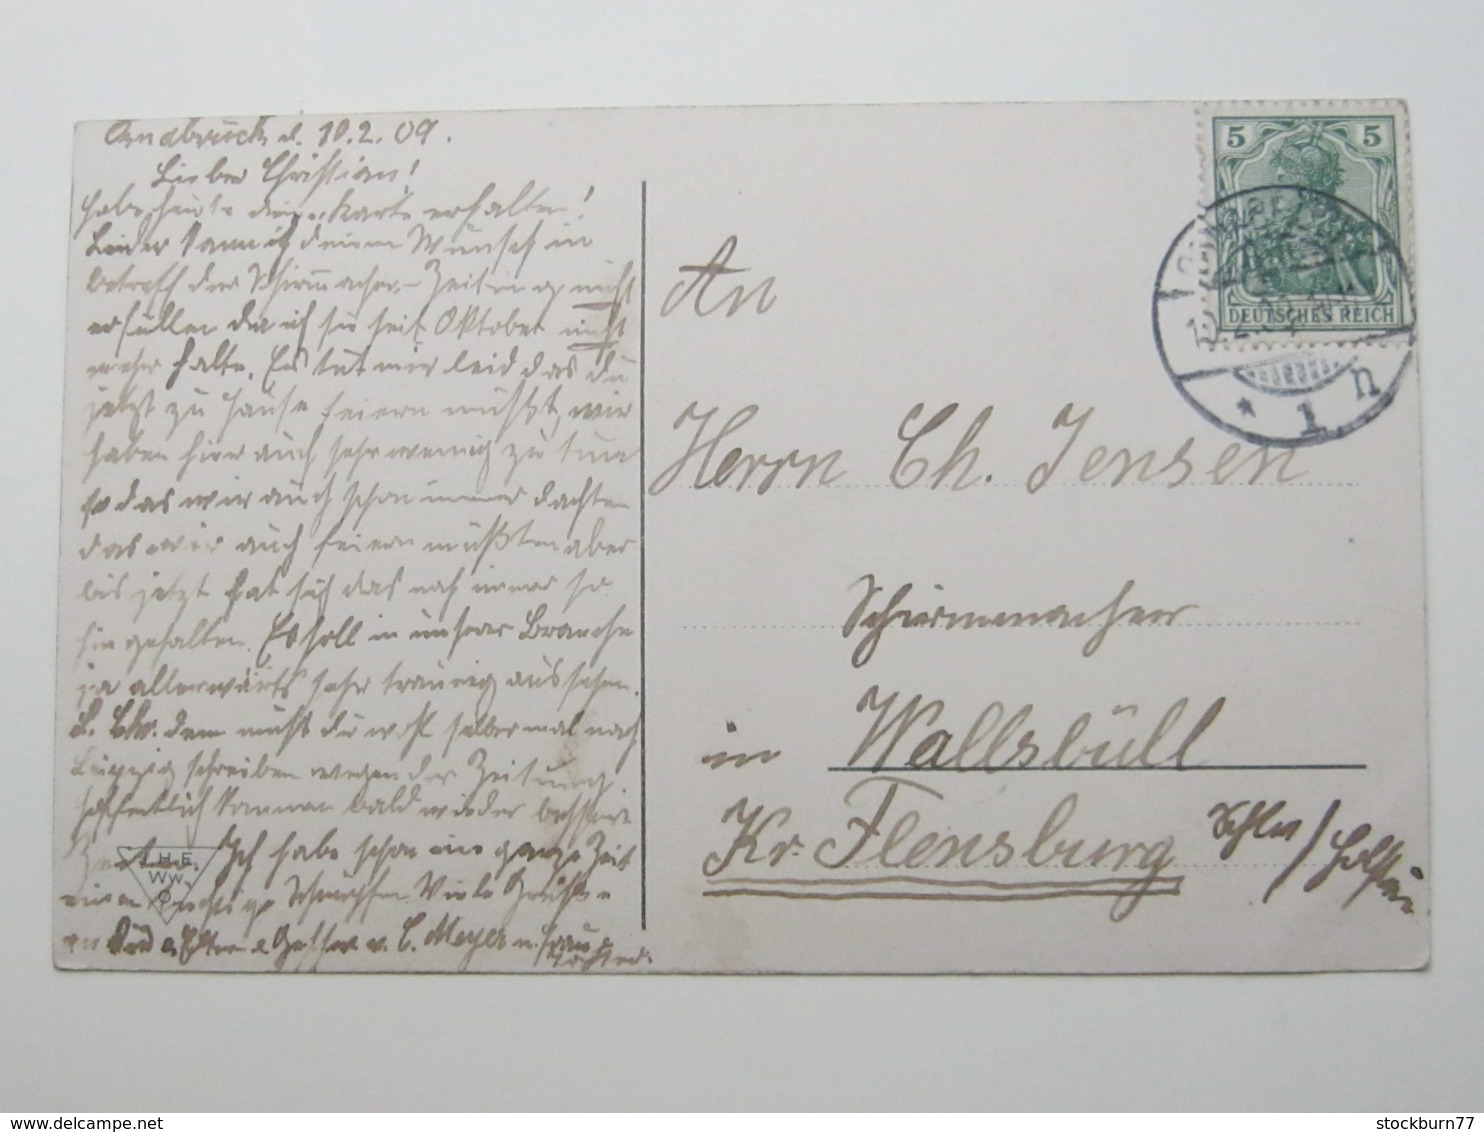 Osnabrück d. 10.2.09.
Lieber Christian!
Habe heute deine Karte erhalten!
Leider kann ich deinem Wunsch in
betreff der Schirmmacher-Zeitung nicht
erfüllen da ich sie seit Oktober nicht
mehr halte. Es tut mir leid das du
jetzt zu Hause feiern mußt, wir
haben hier auch sehr wenig zu tun
so das wir auch schon immer dachten
das wir auch feiern müßten aber
bis jetzt hat sich das noch immer so
hin gehalten. Es soll in unserer Branche
ja allerwärts sehr traurig aussehen.
L. Chr. dann mußt du wohl selber mal nach
Leipzig schreiben wegen der Zeitung
hoffentlich kommen bald wieder bessere
Zeiten. Ich habe schon eine ganze Zeit
einen Viele Grüße
an Eltern v. C. Meyer u. Frau
J. H. E.
W.W.
5 5
DEUTSCHES REICH
* 1 n
An
Herrn Ch. Jensen
Schirmmacher
in Wallsbüll
Kr. Flensburg Schles/Holstein
stockburn77